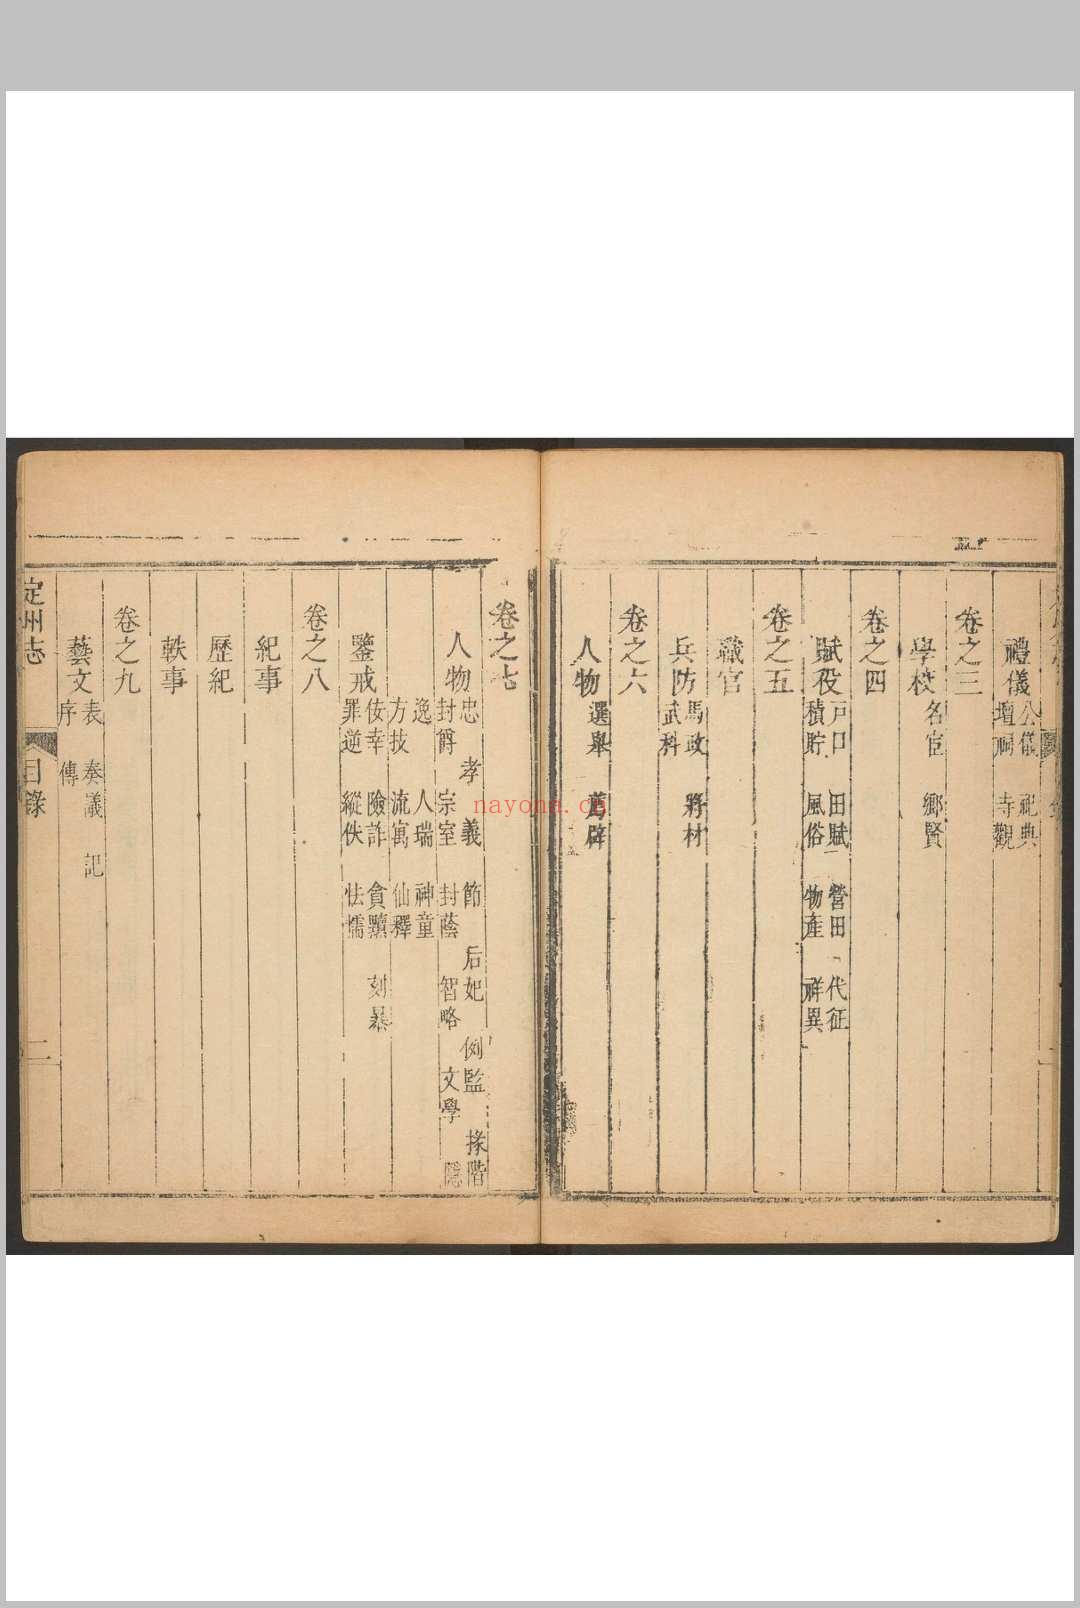 禮儀 公儀 祀典
壇祠 寺觀
卷之三
學校 名宦 鄉賢
卷之四
賦役 戸口 田賦 營田 代征
積貯 風俗 物產 祥異
卷之五
職官
兵防 馬政 將材
武科
卷之六
人物 選舉 薦辟
卷之七
人物 忠 孝 義 節 后妃 例監 掾階
封爵 宗室 封蔭 智略 文學 隱
逸 人瑞 神童
方技 流寓 仙釋
鑒戒 佞幸 險詐 貪黷 刻暴
罪逆 縱佚 怯懦
卷之八
紀事
歷紀
軼事
卷之九
藝文 表 奏議 記
序 傳
定州志 目錄 二
nayona.cn